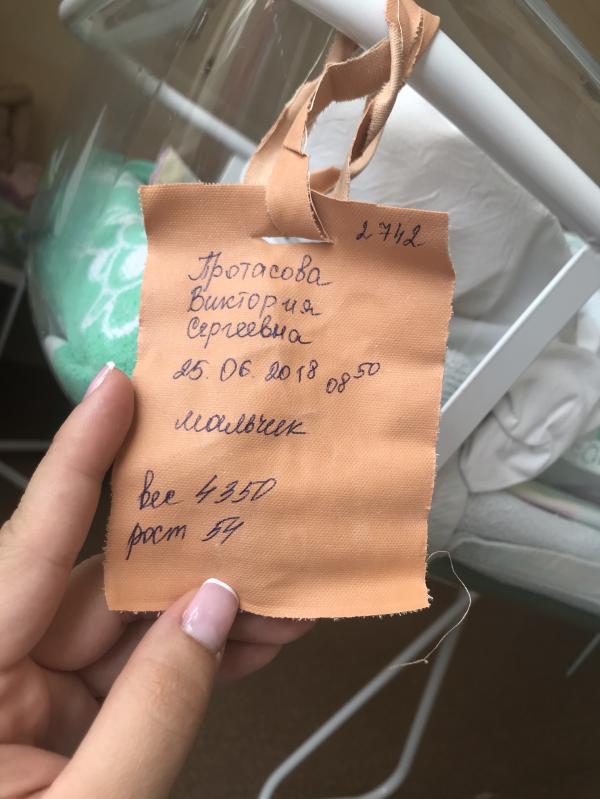 2742
Протасова
Виктория
Сергеевна
25.06.2018 08 50
мальчик
вес 4350
рост 54